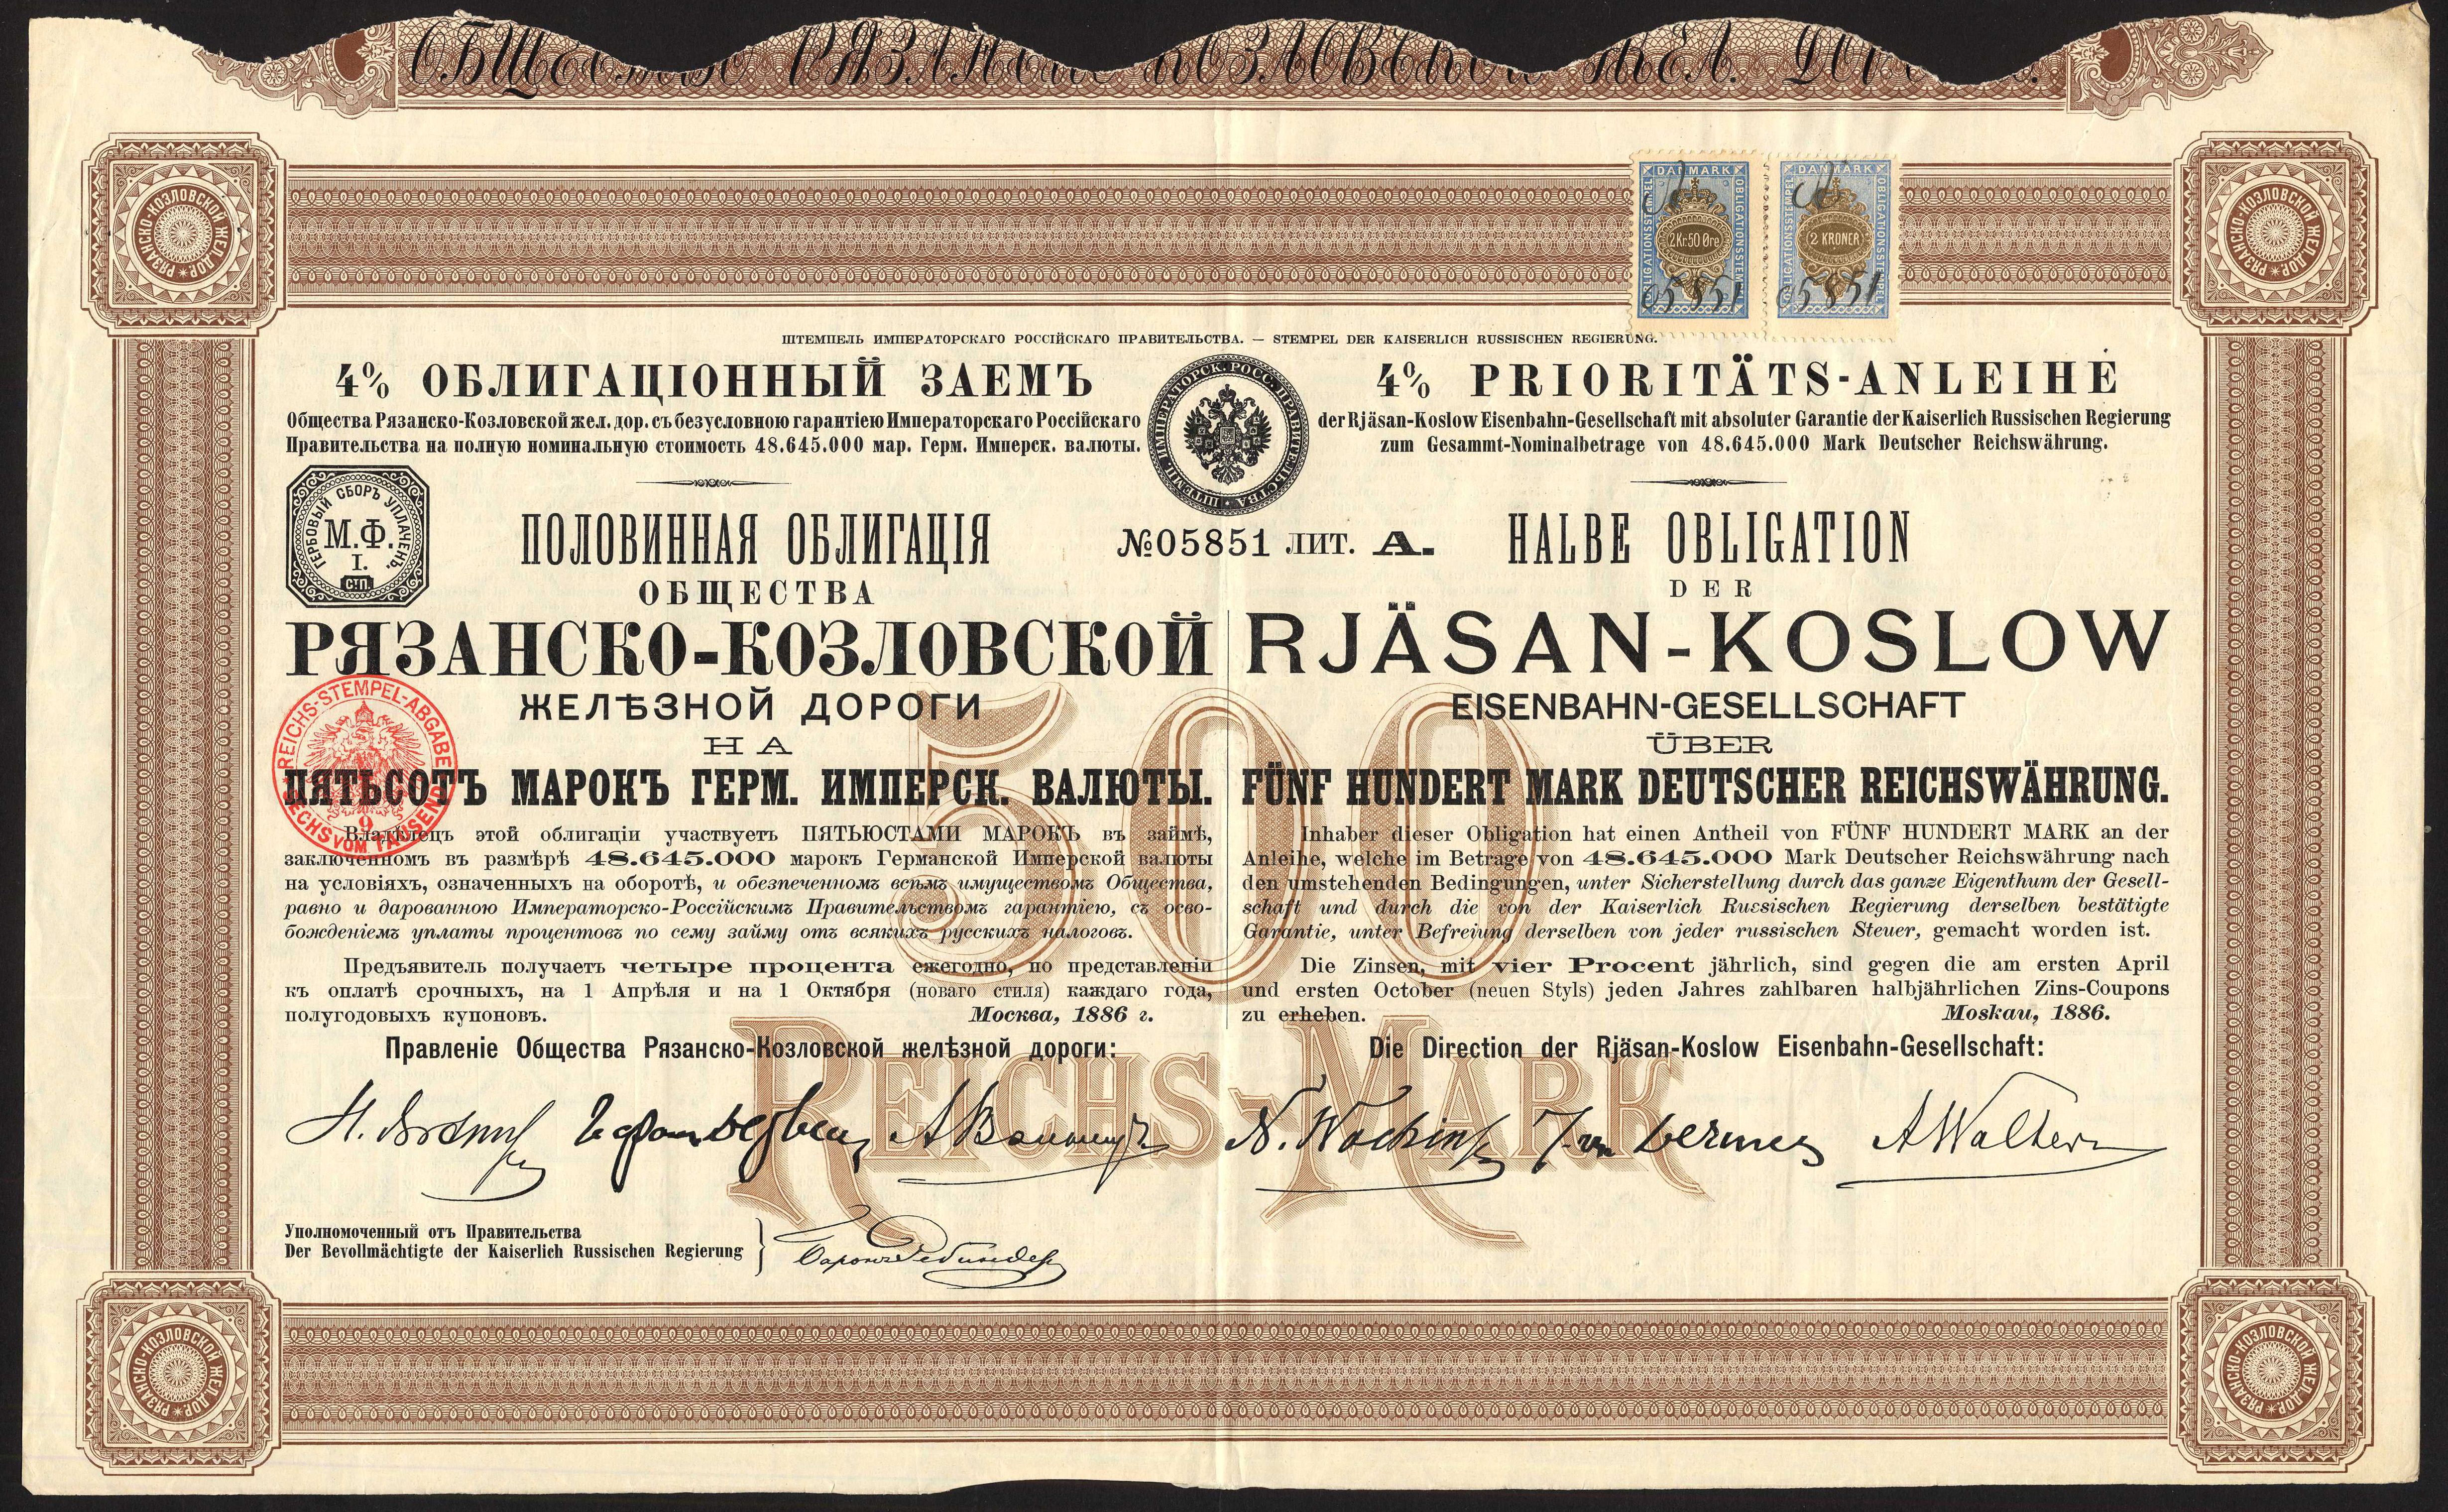 ОБЩЕСТВО РЯЗАНСКО-КОЗЛОВСКОЙ ЖЕЛ. ДОРОГИ.
РЯЗАНСКО-КОЗЛОВСКОЙ ЖЕЛ. ДОР. *
РЯЗАНСКО-КОЗЛОВСКОЙ ЖЕЛ. ДОР. *
DANMARK
OBLIGATIONSSTEMPEL
OBLIGATIONSSTEMPEL
2 Kr 50 Øre
05851
DANMARK
OBLIGATIONSSTEMPEL
OBLIGATIONSSTEMPEL
2 KRONER
05851
ШТЕМПЕЛЬ ИМПЕРАТОРСКАГО РОССІЙСКАГО ПРАВИТЕЛЬСТВА. — STEMPEL DER KAISERLICH RUSSISCHEN REGIERUNG.
4% ОБЛИГАЦІОННЫЙ ЗАЕМЪ
Общества Рязанско-Козловской жел. дор. съ безусловною гарантіею Императорскаго Россійскаго
Правительства на полную номинальную стоимость 48.645.000 мар. Герм. Имперск. валюты.
ШТЕМП. ИМПЕРАТОРСК. РОСС. ПРАВИТЕЛЬСТВА
4% PRIORITÄTS-ANLEIHE
der Rjäsan-Koslow Eisenbahn-Gesellschaft mit absoluter Garantie der Kaiserlich Russischen Regierung
zum Gesammt-Nominalbetrage von 48.645.000 Mark Deutscher Reichswährung.
ГЕРБОВЫЙ СБОРЪ УПЛАЧЕНЪ.
М.Ф.
I.
С.П.
ПОЛОВИННАЯ ОБЛИГАЦІЯ
№05851 ЛИТ. А.
HALBE OBLIGATION
ОБЩЕСТВА
DER
РЯЗАНСКО-КОЗЛОВСКОЙ
RJÄSAN-KOSLOW
ЖЕЛѢЗНОЙ ДОРОГИ
EISENBAHN-GESELLSCHAFT
НА
ÜBER
REICHS-STEMPEL-ABGABE
SECHS VOM TAUSEND
9
500
ПЯТЬСОТЪ МАРОКЪ ГЕРМ. ИМПЕРСК. ВАЛЮТЫ.
FÜNF HUNDERT MARK DEUTSCHER REICHSWÄHRUNG.
Владѣлецъ этой облигаціи участвуетъ ПЯТЬЮСТАМИ МАРОКЪ въ займѣ,
заключенномъ въ размѣрѣ 48.645.000 марокъ Германской Имперской валюты
на условіяхъ, означенныхъ на оборотѣ, и обезпеченномъ всѣмъ имуществомъ Общества,
равно и дарованною Императорско-Россійскимъ Правительствомъ гарантіею, съ осво-
божденіемъ уплаты процентовъ по сему займу отъ всякихъ русскихъ налоговъ.
Предъявитель получаетъ четыре процента ежегодно, по представленіи
къ оплатѣ срочныхъ, на 1 Апрѣля и на 1 Октября (новаго стиля) каждаго года,
полугодовыхъ купоновъ.
Москва, 1886 г.
Inhaber dieser Obligation hat einen Antheil von FÜNF HUNDERT MARK an der
Anleihe, welche im Betrage von 48.645.000 Mark Deutscher Reichswährung nach
den umstehenden Bedingungen, unter Sicherstellung durch das ganze Eigenthum der Gesell-
schaft und durch die von der Kaiserlich Russischen Regierung derselben bestätigte
Garantie, unter Befreiung derselben von jeder russischen Steuer, gemacht worden ist.
Die Zinsen, mit vier Procent jährlich, sind gegen die am ersten April
und ersten October (neuen Styls) jeden Jahres zahlbaren halbjährlichen Zins-Coupons
zu erheben.
Moskau, 1886.
REICHS-MARK
Правленіе Общества Рязанско-Козловской желѣзной дороги:
Die Direction der Rjäsan-Koslow Eisenbahn-Gesellschaft:
von Dervies A Walter
Уполномоченный отъ Правительства
Der Bevollmächtigte der Kaiserlich Russischen Regierung
Баронъ Ребиндеръ
РЯЗАНСКО-КОЗЛОВСКОЙ ЖЕЛ. ДОР. *
РЯЗАНСКО-КОЗЛОВСКОЙ ЖЕЛ. ДОР. *